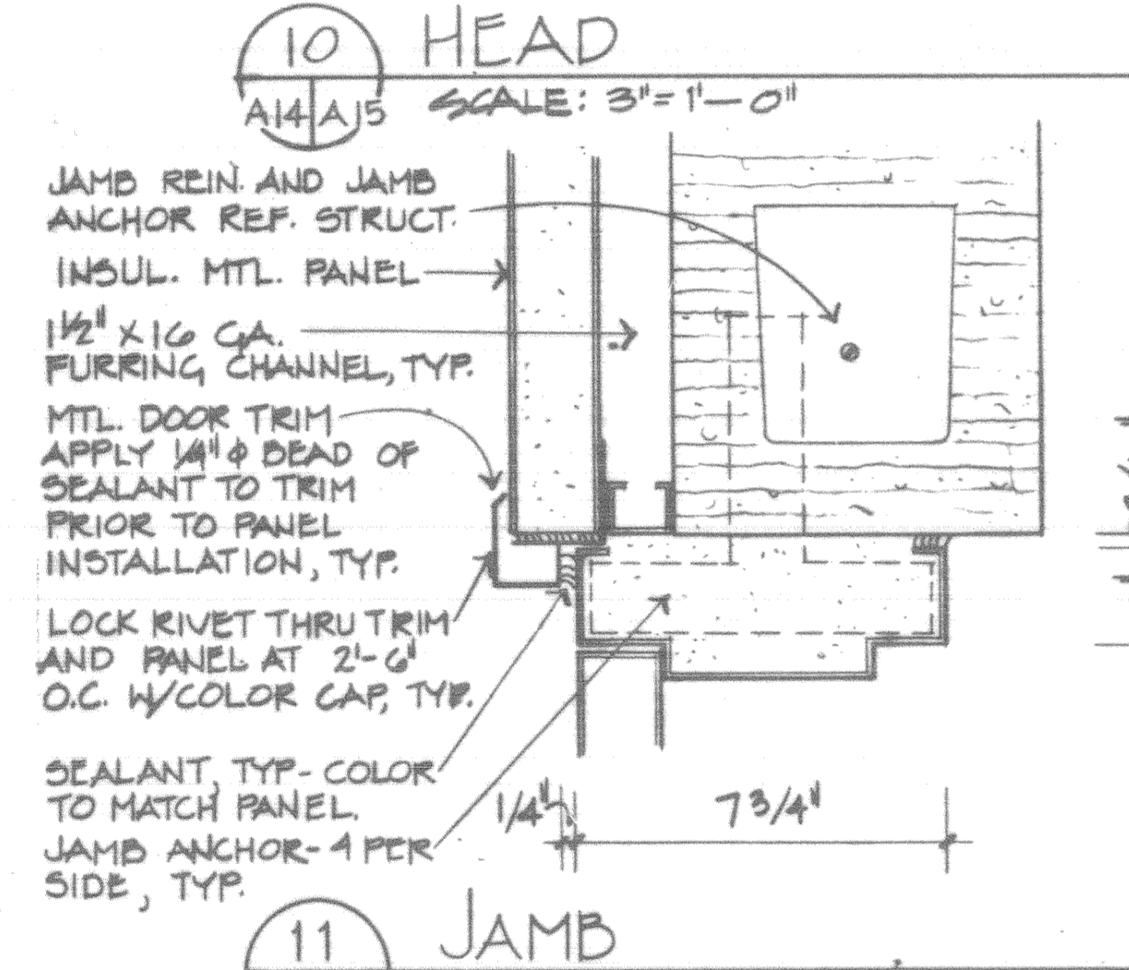 10 HEAD
A14 A15 SCALE: 3"=1'-0"
JAMB REIN. AND JAMB
ANCHOR REF. STRUCT.
INSUL. MTL. PANEL
1 1/2" X 16 GA.
FURRING CHANNEL, TYP.
MTL. DOOR TRIM
APPLY 1/4" φ BEAD OF
SEALANT TO TRIM
PRIOR TO PANEL
INSTALLATION, TYP.
LOCK RIVET THRU TRIM
AND PANEL AT 2'-6"
O.C. W/COLOR CAP, TYP.
SEALANT, TYP-COLOR
TO MATCH PANEL.
JAMB ANCHOR-4 PER
SIDE, TYP.
1/4" 7 3/4"
11 JAMB